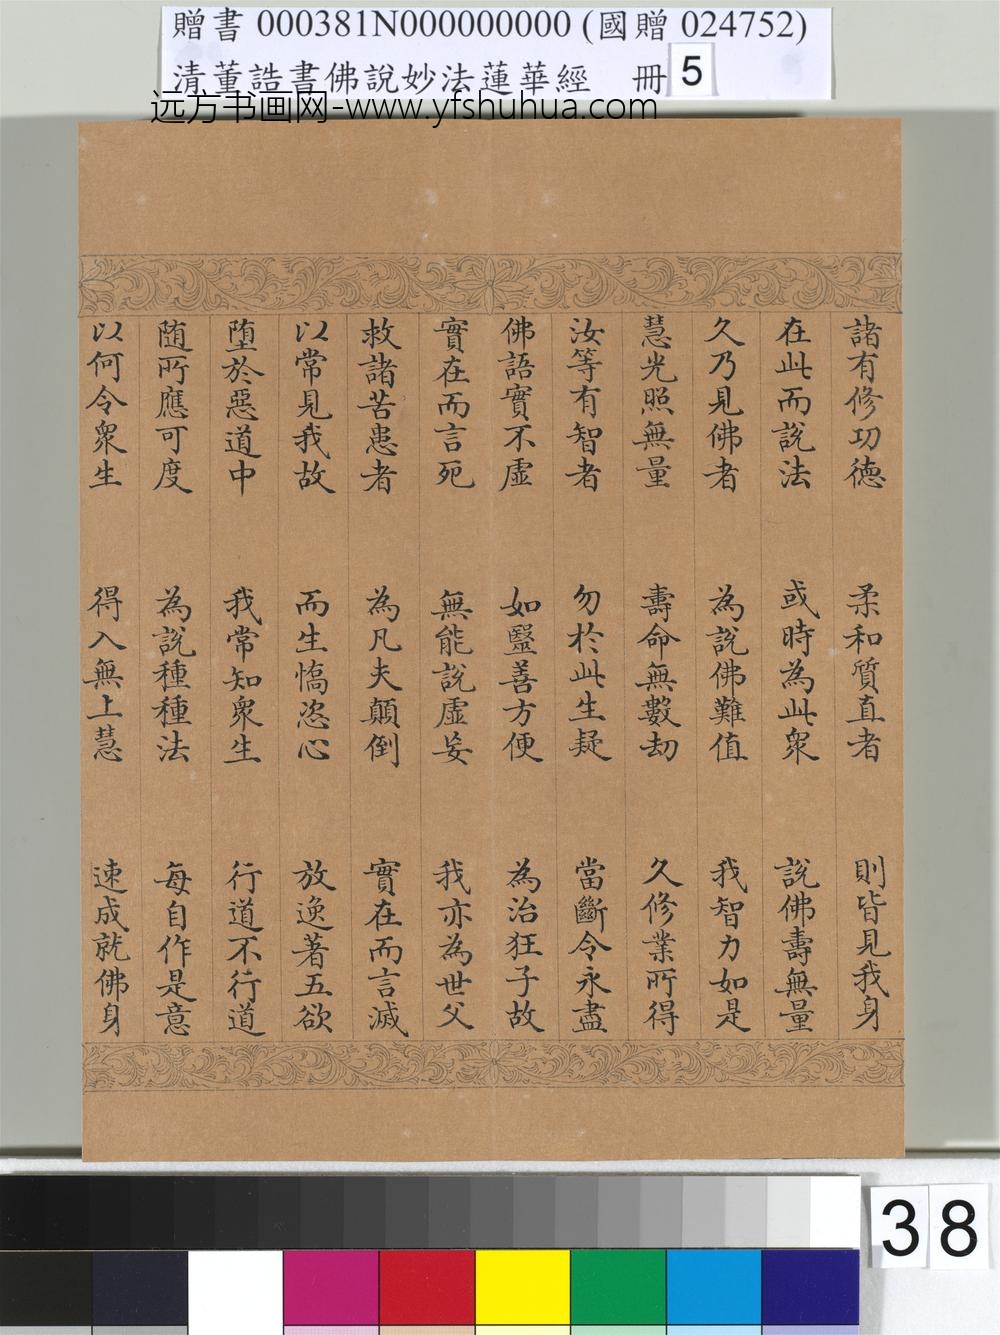 贈書 000381N000000000 (國贈 024752)
清董誥書佛說妙法蓮華經 冊 5
远方书画网-www.yfshuhua.com
諸有修功德 柔和質直者 則皆見我身
在此而說法 或時為此衆 說佛壽無量
久乃見佛者 為說佛難值 我智力如是
慧光照無量 壽命無數劫 久修業所得
汝等有智者 勿於此生疑 當斷令永盡
佛語實不虛 如毉善方便 為治狂子故
實在而言死 無能說虛妄 我亦為世父
救諸苦患者 為凡夫顛倒 實在而言滅
以常見我故 而生憍恣心 放逸著五欲
墮於惡道中 我常知衆生 行道不行道
随所應可度 為說種種法 每自作是意
以何令衆生 得入無上慧 速成就佛身
38